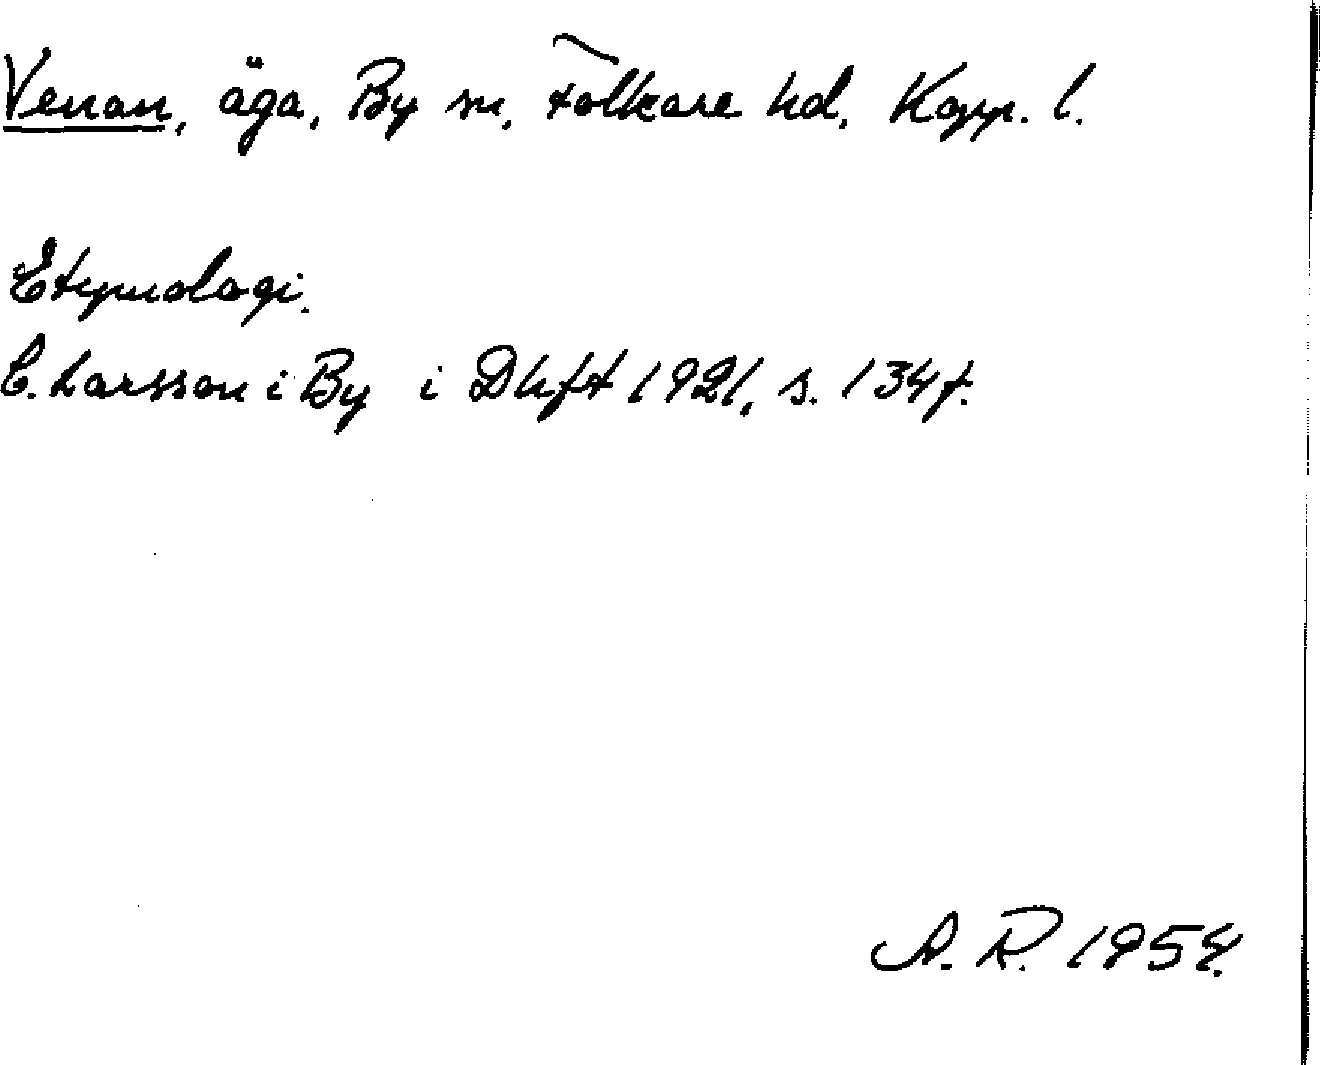 Venan, äga, By sn, Folkare hd, Kopp. l.
Etymologi.
C. Larsson i By i Dhft 1921, s. 134 f.
A. R. 1954.